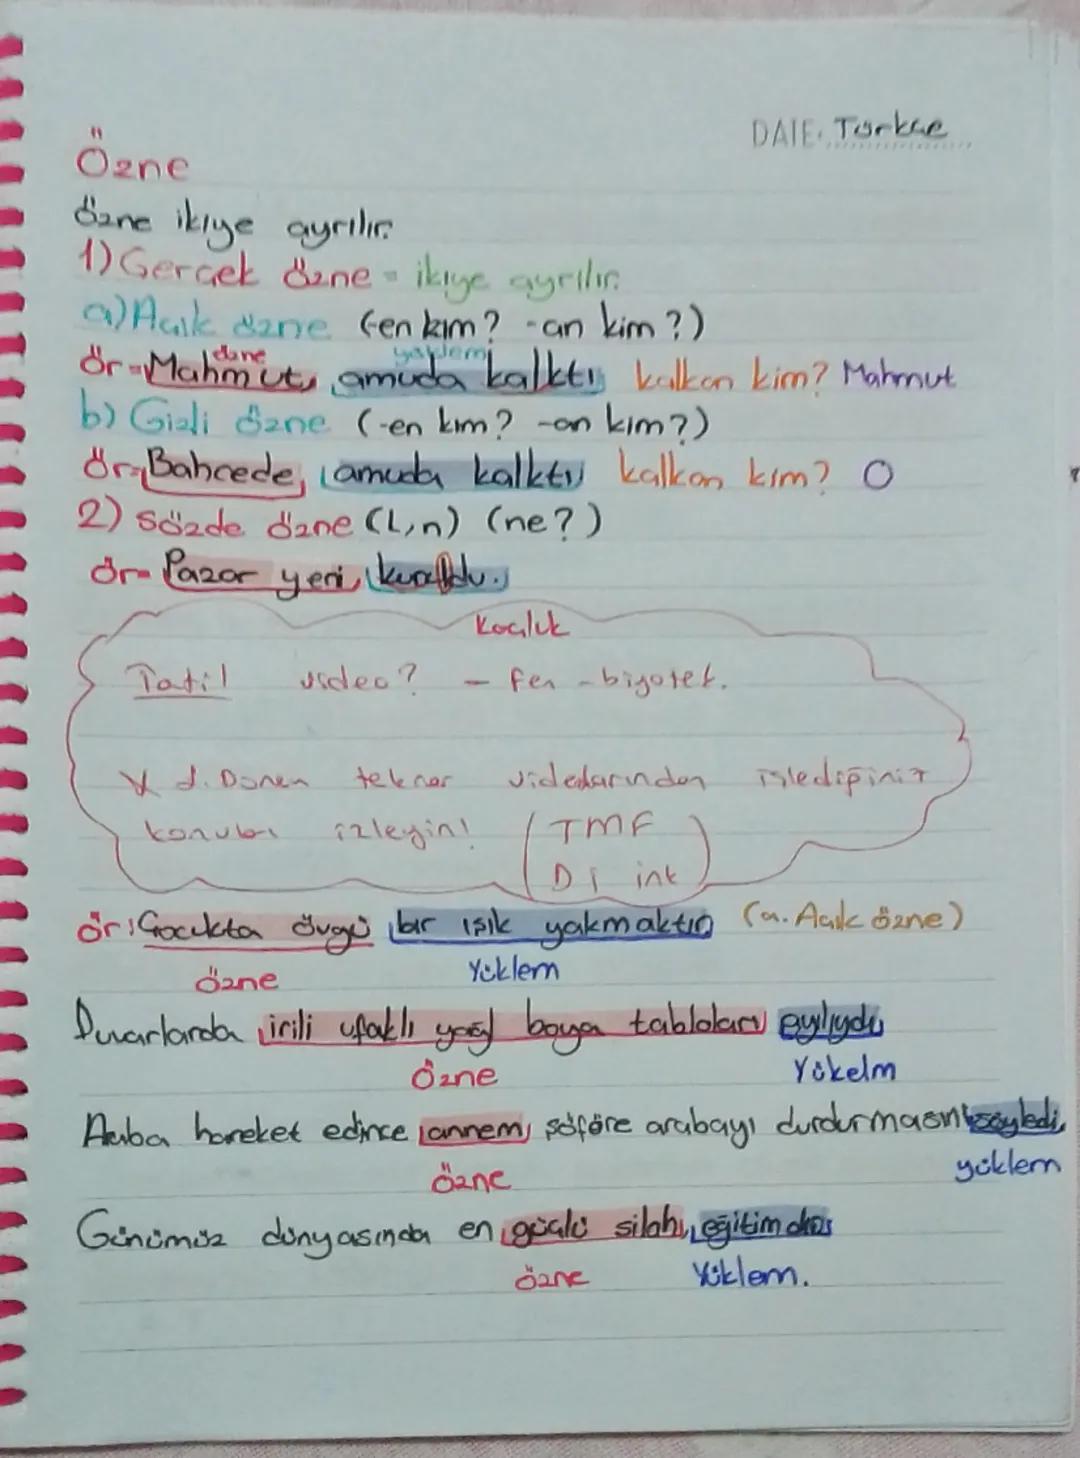 DATE: Türkçe
Özne
Özne ikiye ayrılır.
1) Gerçek özne = ikiye ayrılır.
a) Açık özne (-en kim? -an kim?)
özne yüklem
ör = Mahmut, amuda kalktı kalkan kim? Mahmut
b) Gizli özne (-en kim? -an kim?)
ör = Bahçede, amuda kalktı kalkan kim? O
2) Sözde özne (L,n) (ne?)
ör = Pazar yeri, kuruldu.
Koçluk
Tatil video? - fen - biyotek.
1. Dönem tekrar videolarından işlediğiniz
konuları izleyin! (TMF
Dİ ink)
ör: Çocukta övgü bir ışık yakmaktır (a. Açık özne)
özne Yüklem
Duvarlarda irili ufaklı yağlı boya tabloları
Özne Yükelm
Araba hareket edince annem, şöföre arabayı durdurmasını söyledi,
özne yüklem
Günümüz dünyasında en güçlü silahı, eğitim
özne Yüklem.